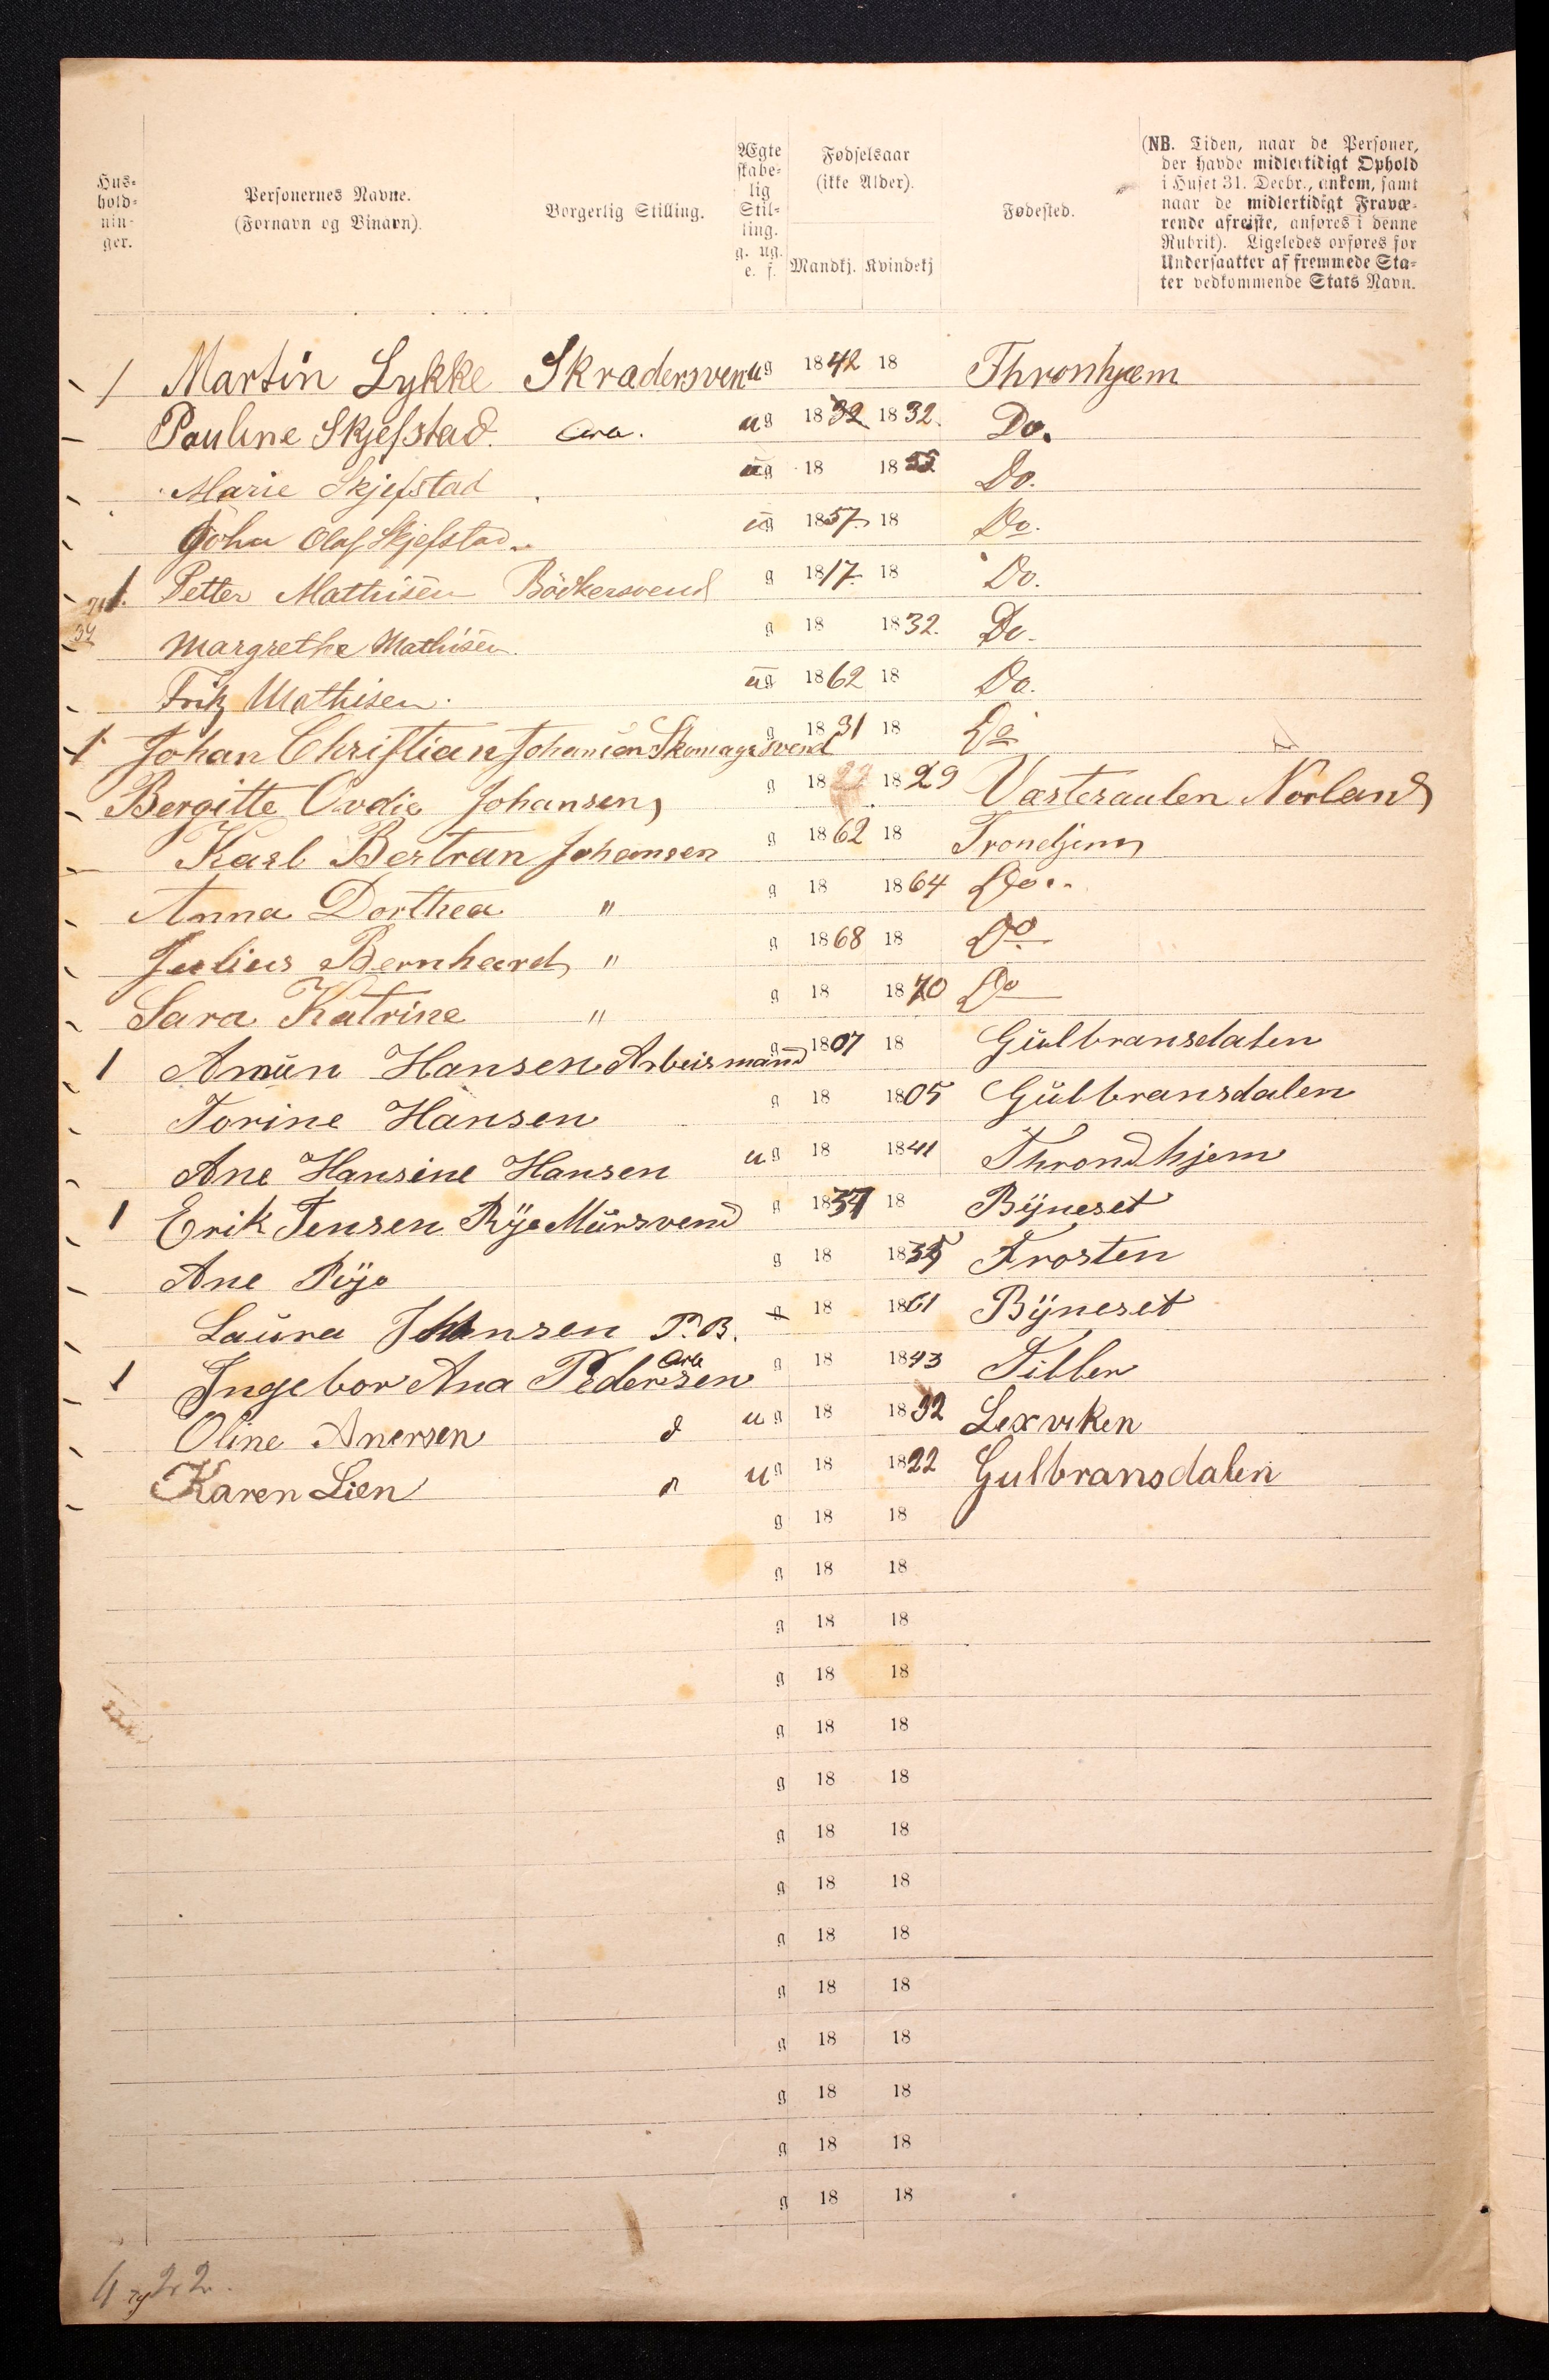 Hus-
hold-
nin-
ger.
Personernes Navne.
(Fornavn og Binavn).
Borgerlig Stilling.
Ægte
skabe-
lig
Stil-
ling.
g. ug.
e. f.
Fødselsaar
(ikke Alder).
Mandkj. Kvindekj
Fødested.
(NB. Tiden, naar de Personer,
der havde midlertidigt Ophold
i Huset 31. Decbr., ankom, samt
naar de midlertidigt Fravæ-
rende afreiste, anføres i denne
Rubrik). Ligeledes opføres for
Undersaatter af fremmede Sta-
ter vedkommende Stats Navn.
1 Martin Lykke Skradersven ug 1842 18 Thronhjæm
Pauline Skjefstad. Arb. ug 1832 1832. Do.
Marie Skjefstad ug 18 1855 Do.
John Olaf Skjefstad. ug 1857. 18 Do.
1. Petter Mathisen Bödkersvend g 1817. 18 Do.
Margrethe Mathisen. g 18 1832. Do.
Fritz Mathisen. ug 1862 18 Do.
1 Johan Christian Johansen Skomagersvend g 1831 18 Do
Bergitte Ovdie Johansen g 18 1829 Væsteraalen Norland
Karl Bertran Johansen g 1862 18 Trondjem
Anna Dorthea " g 18 1864 Do..
Julius Bernhard " g 1868 18 Do
Sara Katrine " g 18 1870 Do
1 Amün Hansen Arbeismand g 1807 18 Gülbransdalen
Torine Hansen g 18 1805 Gülbransdalen
Ane Hansine Hansen ug 18 1841 Throndhjem
1 Erik Jensen Rÿe Mürsvend g 1834 18 Bÿneset
Ane Rÿe g 18 1835 Frosten
Laura Jensen P.B. g 18 1861 Bÿneset
1 Ingebor Ana Pedersen Arb g 18 1843 Tiller
Oline Anersen d ug 18 1832 Lexviken
Karen Lien d ug 18 1822 Gulbransdalen
g 18 18
g 18 18
g 18 18
g 18 18
g 18 18
g 18 18
g 18 18
g 18 18
g 18 18
g 18 18
g 18 18
g 18 18
g 18 18
g 18 18